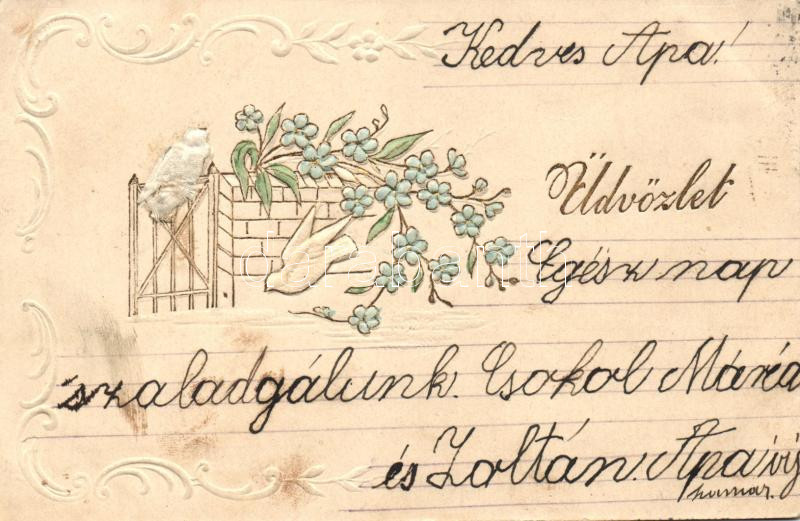 Kedves Apa!
Üdvözlet
Egész nap
szaladgálunk. Csokol Mária
és Zoltán. Apa irj
hamar.
darabanth